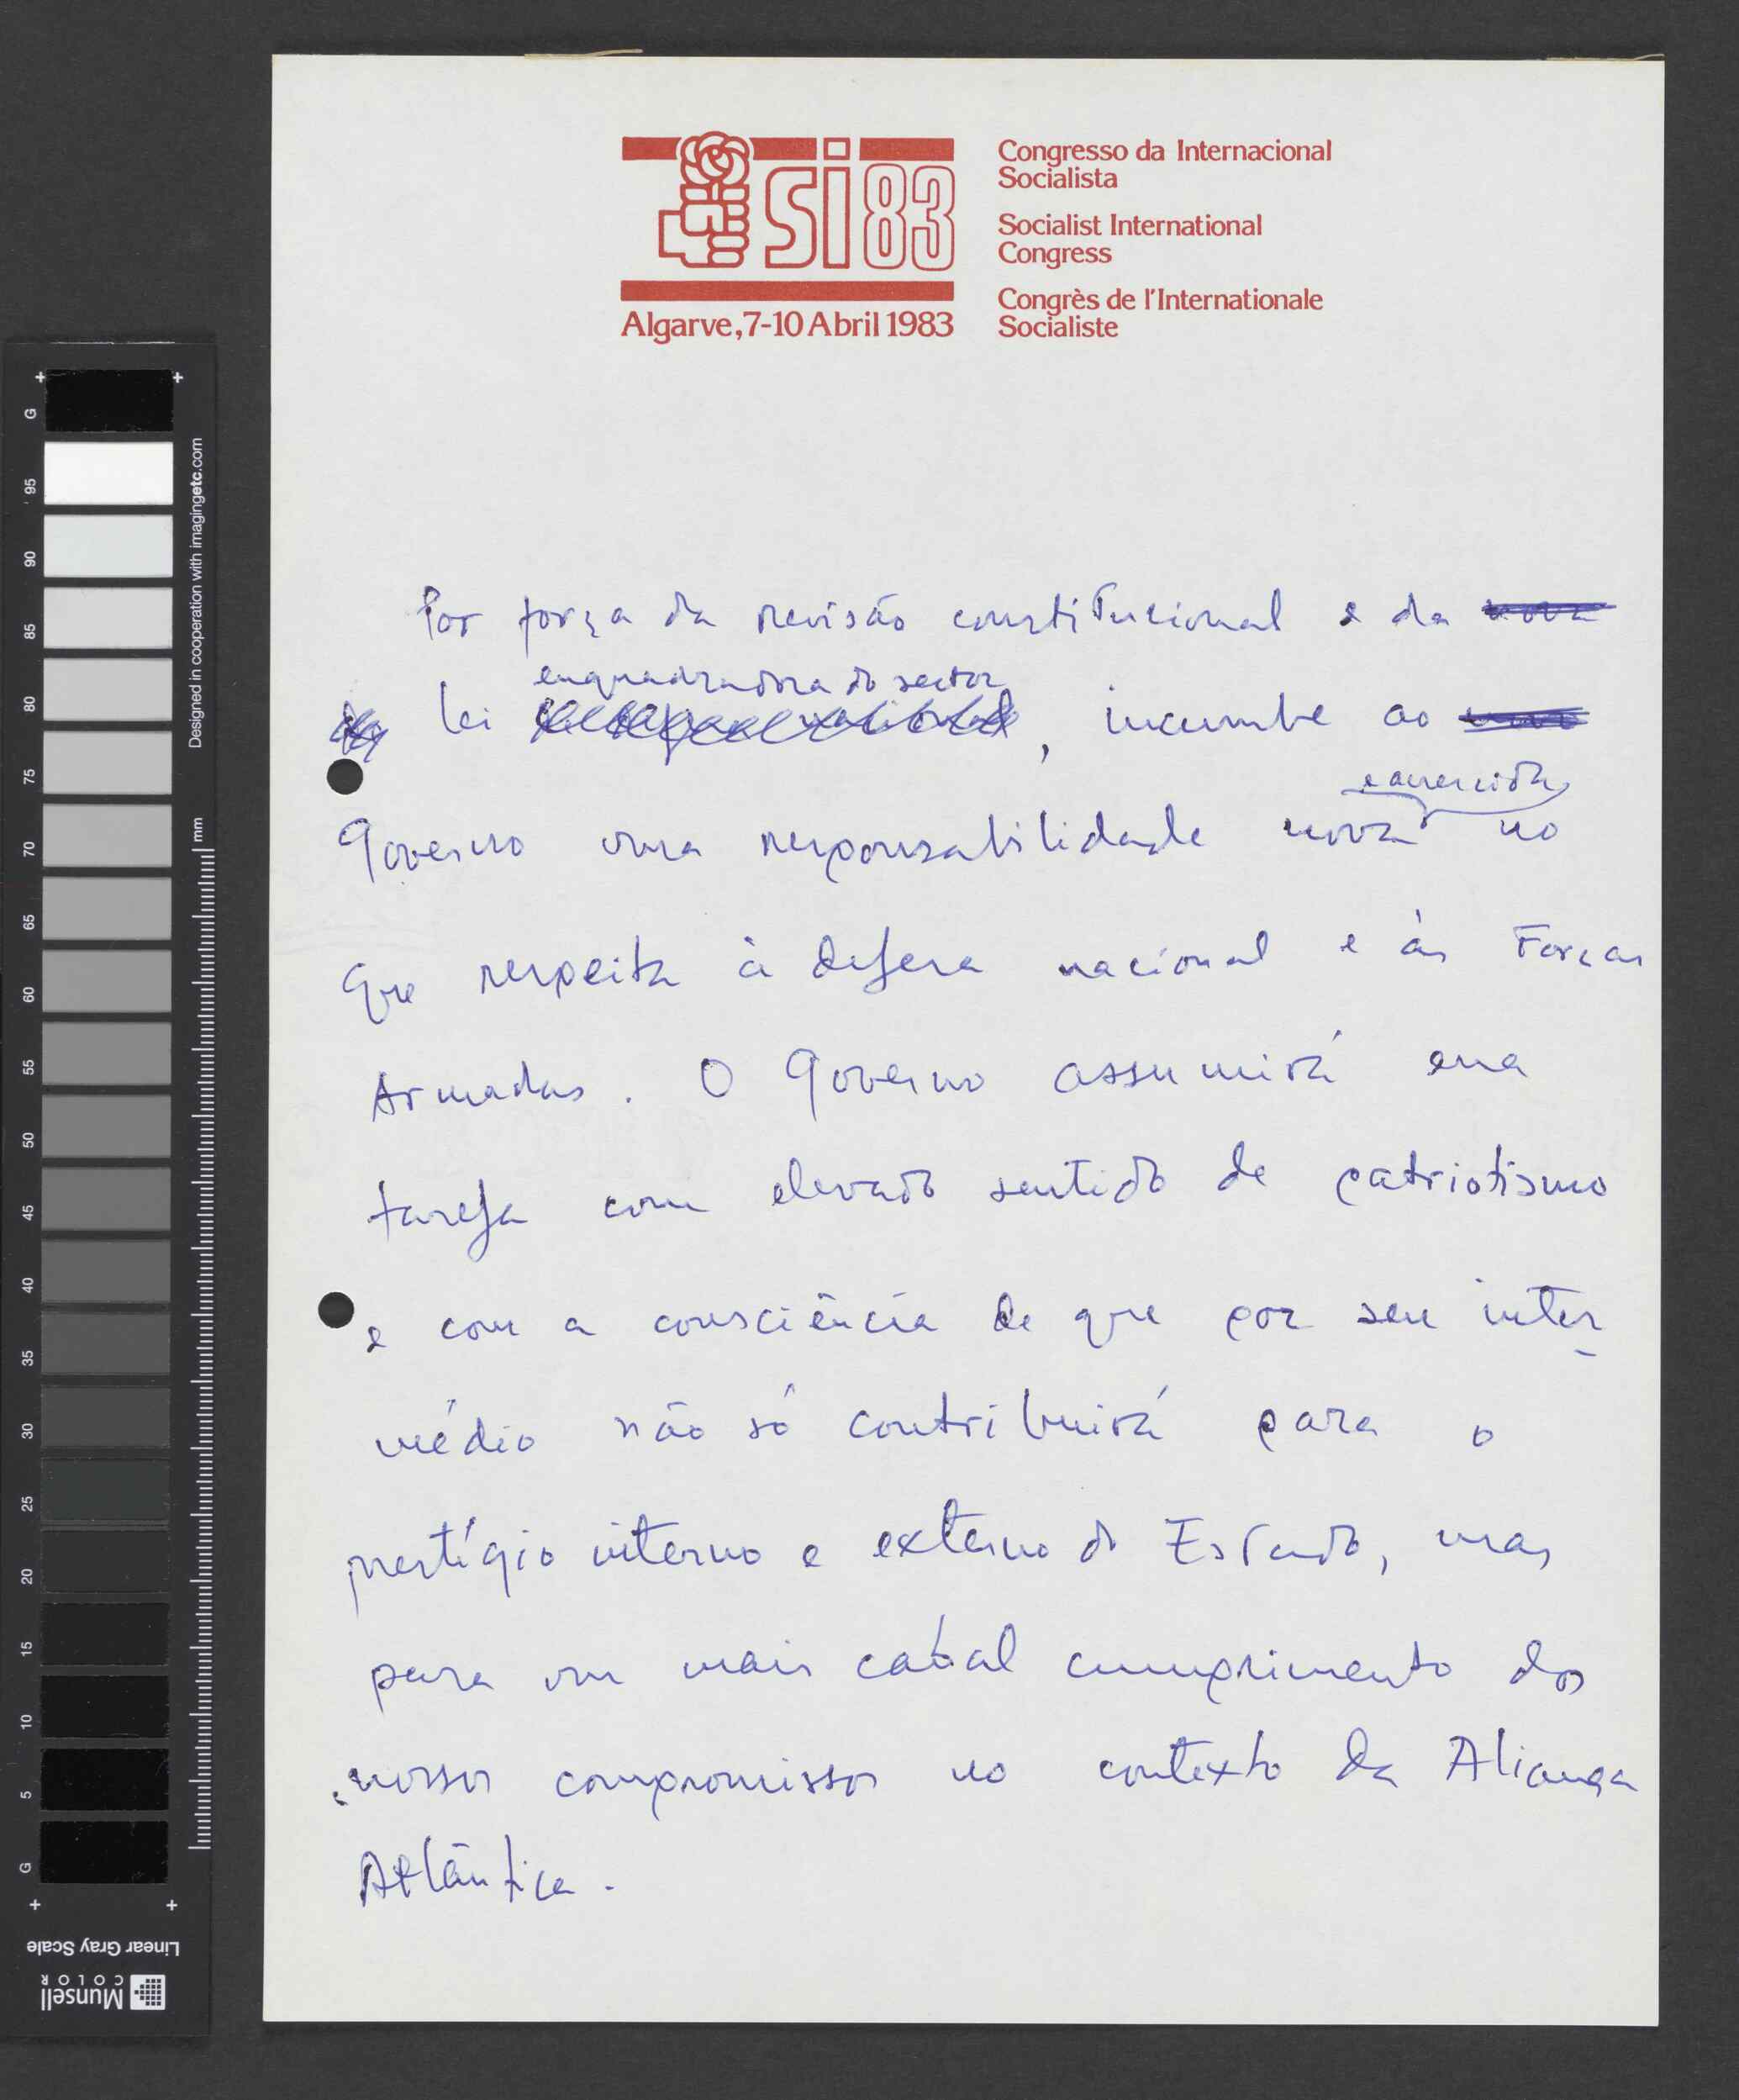 si 83
Algarve, 7-10 Abril 1983
Congresso da Internacional
Socialista
Socialist International
Congress
Congrès de l'Internationale
Socialiste
Por força da revisão constitucional e da nova
enquadradora do sector
lei , incumbe ao
acrescida
Governo uma responsabilidade nova no
que respeita à defesa nacional e às Forças
Armadas. O Governo assumirá essa
tarefa com elevado sentido de patriotismo
e com a consciência de que por seu inter
médio não só contribuirá para o
prestígio interno e externo do Estado, mas
para um mais cabal cumprimento dos
nossos compromissos no contexto da Aliança
Atlântica.
G
95
90
85
80
75
70
65
60
55
50
45
40
35
30
25
20
15
10
5
G
Designed in cooperation with imagingetc.com
mm
Linear Gray Scale
Munsell
COLOR